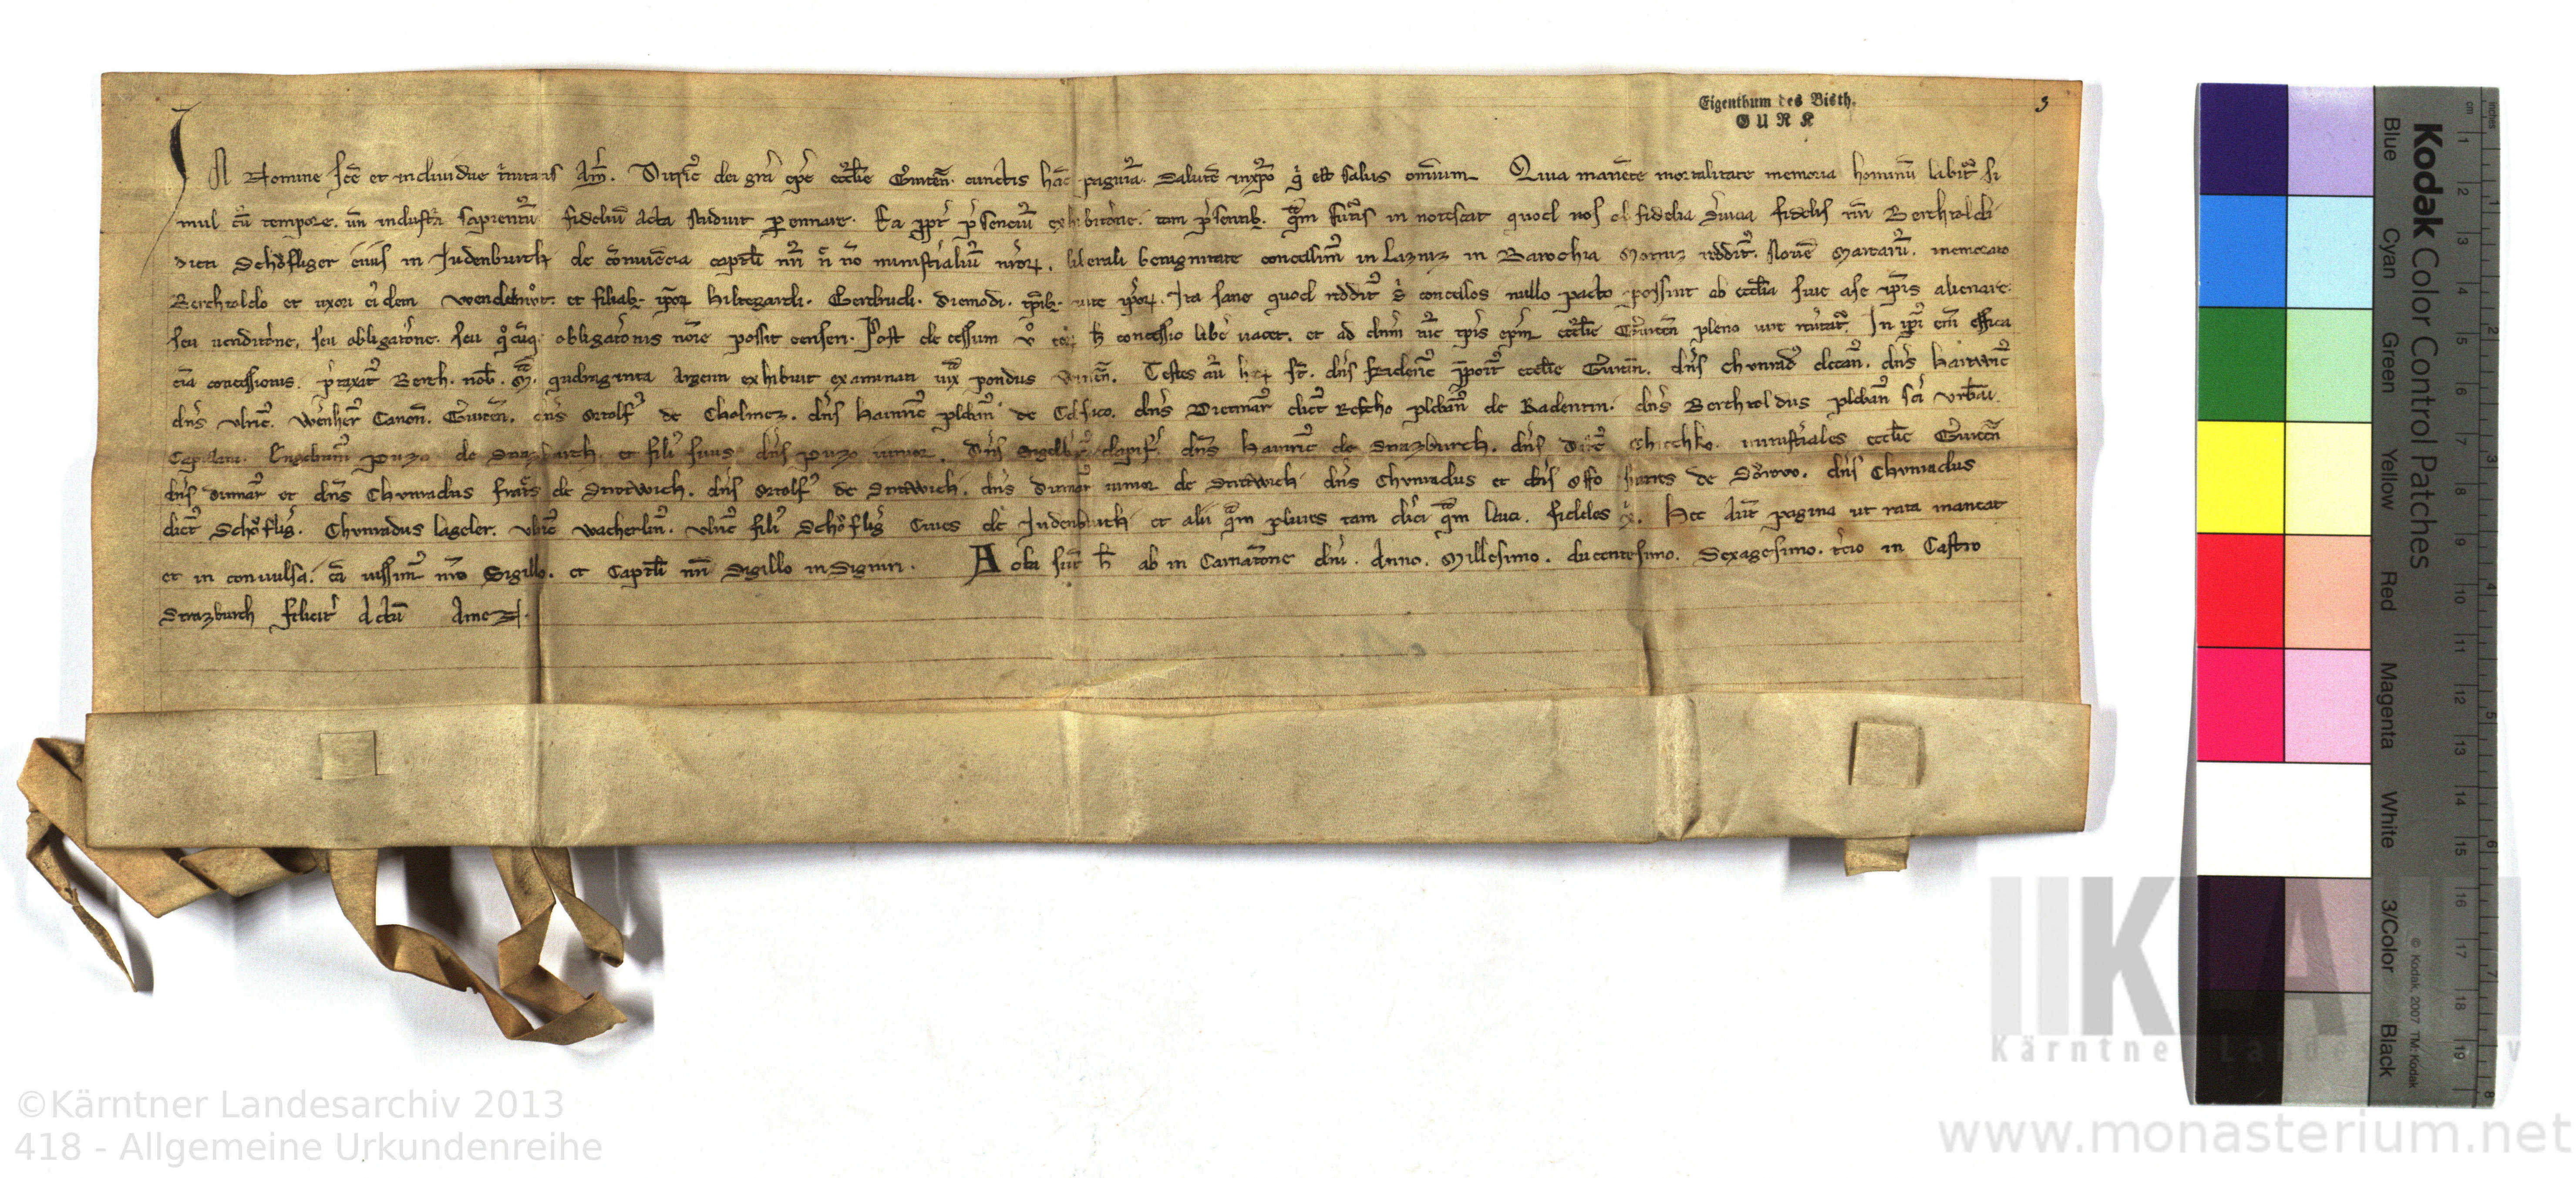 Eigenthum des Bisth.
GURK
3
IN Nomine sce et individue trinitatis Am. Ditric dei gra epc ecclie Gurcen. cunctis hac paginā. Salute in xpo q est salus omium. Quia manete mortalitate memoria hominu labit si
mul cu tempore. un industria sapientu fidelium acta studuit perennare. Ea ppt psenciu exhibitone. tam psentib. qm futis in notescat quod nos ob fidelia svicia fidelis nri Berchtoldi
dicti Schofliger civis in Judenburch de convencia capitli nri n no ministialiu nror. liberali benignitate concessim in Lazniz in Barochia reddit. Novem Marcaru. memorato
Berchtoldo et uxori eidem et filiab. ipor Hiltegardi. Gerdrudi. Diemodi. tpib. vite ipor. Ita sane quod reddit s concessos nullo pacto possint ab ecclia sive a se ipis alienare.
seu venditone, seu obligatone. seu qcuq obligatonis noie possit censeri. Post decessum v eor h concessio libe vacet. et ad dnm nuc tpis epm ecclie Gurcen pleno iure revtat. In ipi em effica
cia concessionis. ptaxat Berth. nob. M. quadraginta argenti exhibuit examinati iux pondus. Testes au hui st. dns Frideric pposit ecclie Gurcen. dns Chunrad decan. dns Hartwic
dns Ulric. Wernher Canon. Gurcen. dns Ortolf de Cholmez. dns Hainric pleban de dns Dietmar dict Rescho pleban de Radentin. dns Berchtoldus pleban sci Urbani.
Capellani. Engelram Puzo de Strazburch. et fili suus dns Puzo iunior. dns dapif. dns Hainric de Strazburch. dns ministiales ecclie Gurcen
dns Ditmar et dns Chunradus fratres de Stretwich. dns Ortolf de Stretwich. dns Ditmar iunior de Stretwich dns Chunradus et dns Offo fratres de dns Chunradus
dict Schoflig. Chunradus Lageler. Ulric Wacherlin. Ulric fili Schoflig Cives de Judenburch et alii qm plures tam clici qm laici. fideles x. Hec aut pagina ut rata maneat
et in convulsa. ea iussim nro Sigillo. et Capitli nri Sigillo insigniri. Acta sut h ab in Carnatone dni. Anno. Millesimo. ducentesimo. Sexagesimo. tcio in Castro
Strazburch felicit Actu Amen.
Kodak Color Control Patches
Blue Cyan Green Yellow Red Magenta White 3/Color Black
© Kodak, 2007 TM: Kodak
cm 1 2 3 4 5 6 7 8 9 10 11 12 13 14 15 16 17 18 19
inches 1 2 3 4 5 6 7 8
KA
Kärntner Landesarchiv
©Kärntner Landesarchiv 2013
418 - Allgemeine Urkundenreihe
www.monasterium.net